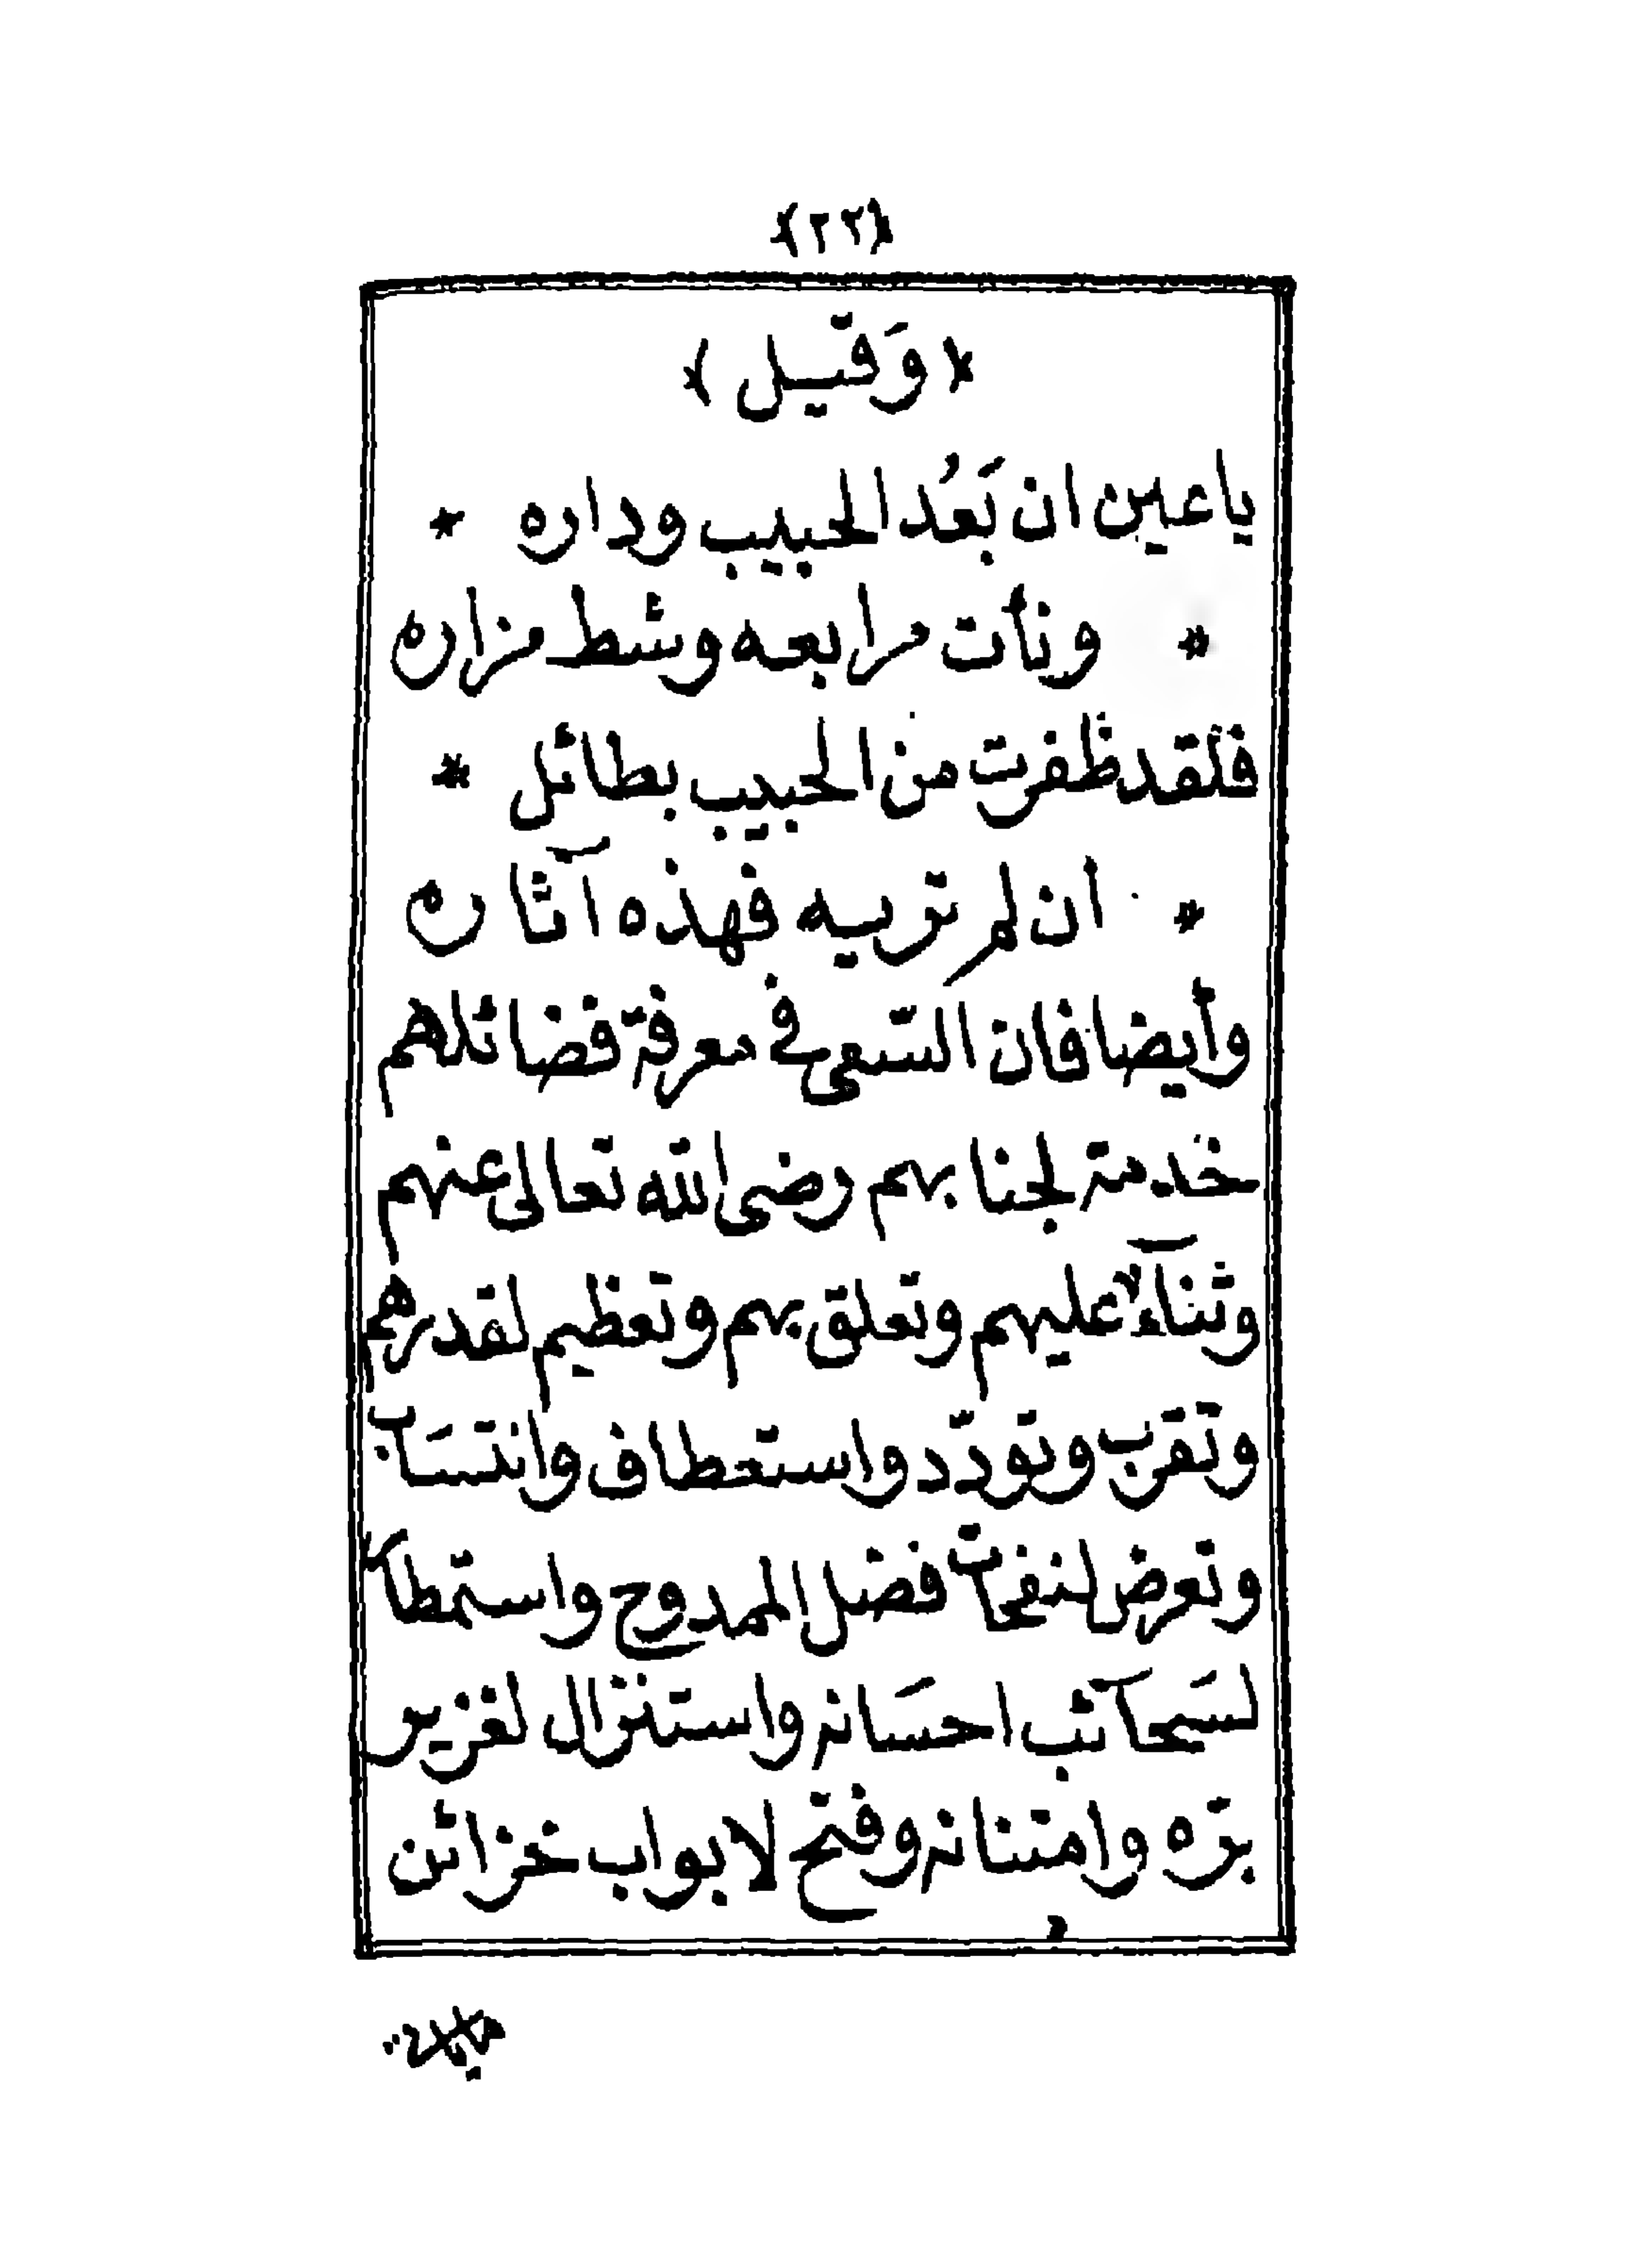 (٢٢)
(وَقيل)
ياعين ان بَعُد الحبيب وداره *
* ونأت مرابعه وشط مزاره
فلقد ظفرت من الحبيب بطائل *
* ان لم تريه فهذه آثاره
وأيضا فان السّعي في معرفة فضائلهم
خدمة لجنابهم رضى الله تعالى عنهم
وثنآءً عليهم وتعلق بهم وتعظيم لقدرهم
وتقرب وتودّد واستعطاف وانتسَاب
وتعرض لنفحات فضل الممدوح واستمطار
لسَحآئب احسَانه واستنزال لغزير
برّه وامتنانه وفتح لابواب خزائن